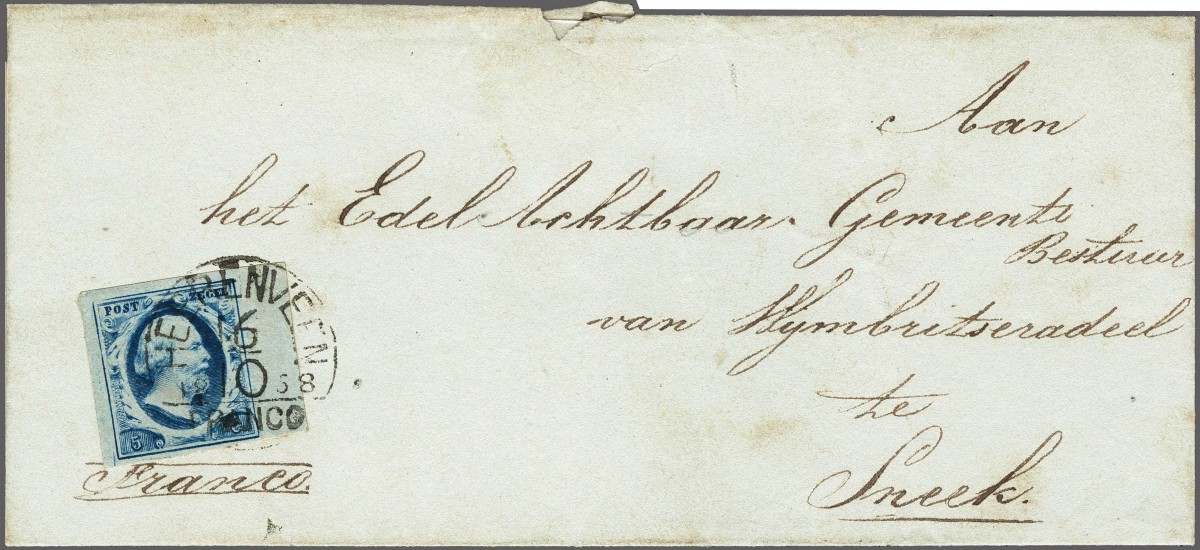 Aan
het Edel Achtbaar Gemeente
Bestuur
van Wymbritseradeel
te
Sneek.
POST ZEGEL
5 C
HEERENVEEN
16
10
1858
FRANCO
Franco.